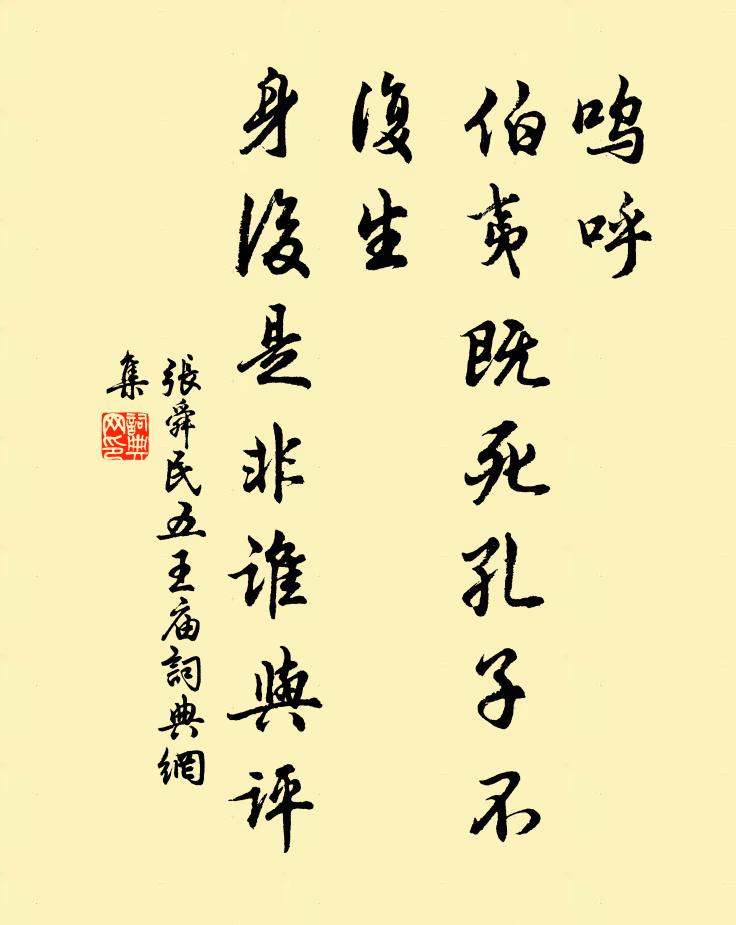 嗚呼
伯夷既死孔子不
復生
身後是非誰與評
張舜民五王庙詞典網
集
詞典網印